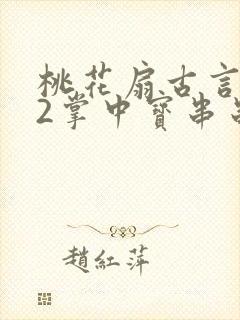 桃花扇古言
2掌中寳串
趙紅萍